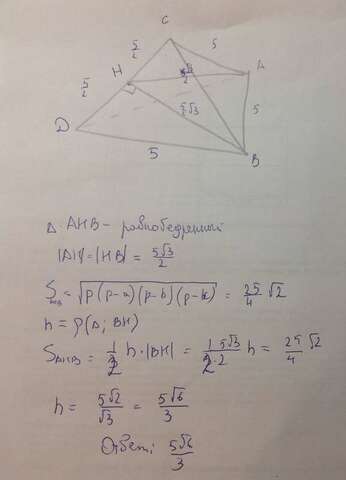 C
5/2
5
H
5√3/2
A
5/2
5√3/2
5
D
5
B
Δ AHB - равнобедренный
|AH| = |HB| = 5√3/2
S = √p(p-a)(p-b)(p-c) = 25/4 √2
h = ρ(A; BH)
S_AHB = 1/2 h·|BH| = 1/2 · 5√3/2 h = 25/4 √2
h = 5√2/√3 = 5√6/3
Ответ: 5√6/3